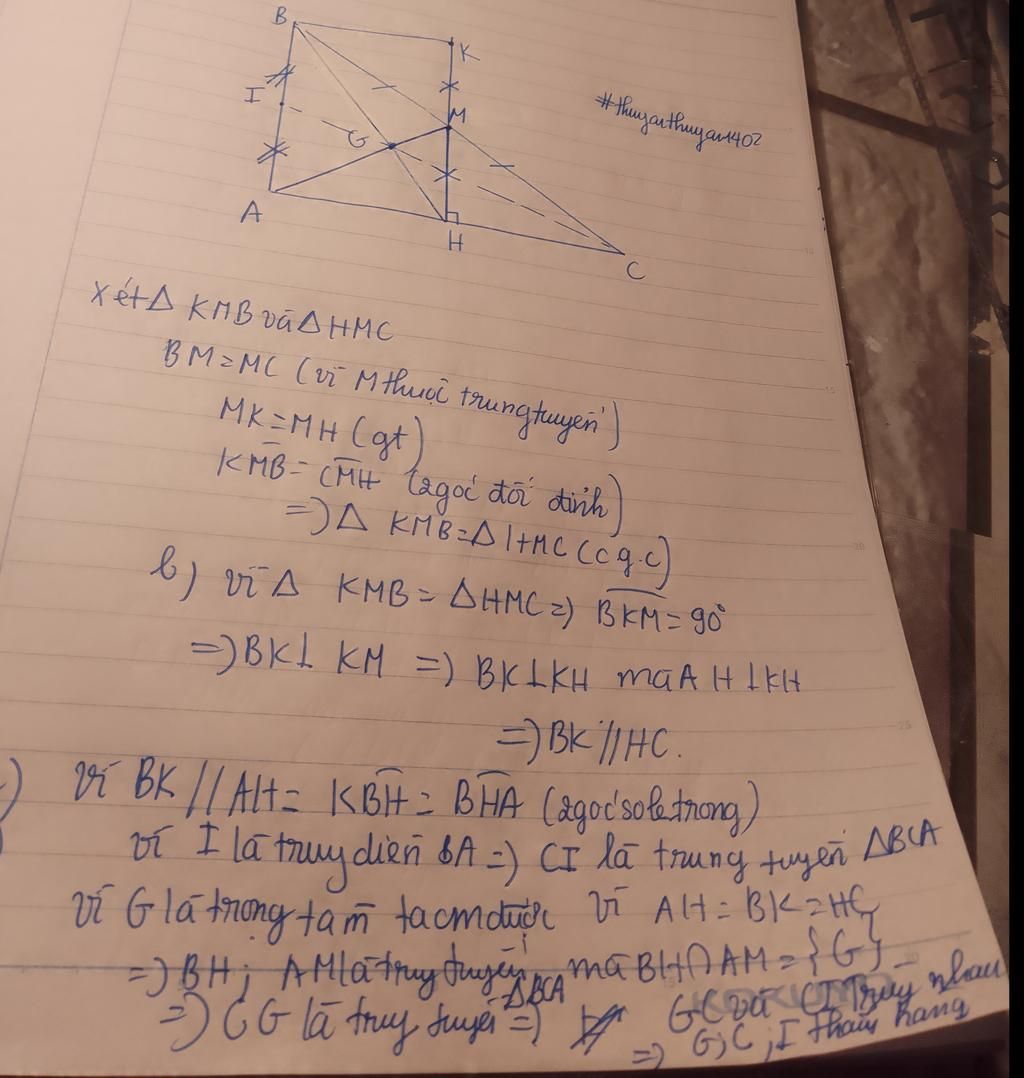 B
K
I
M
G
#thuyanthuyan1402
A
H
C
Xét Δ KMB và Δ HMC
BM = MC (vì M thuộc trung tuyến)
MK = MH (gt)
KMB = CMH (2 góc đối đỉnh)
=) Δ KMB = Δ HMC (c g.c)
b) vì Δ KMB = ΔHMC =) BKM = 90°
=) BK ⊥ KM =) BK ⊥ KH mà A H ⊥ KH
=) BK // HC.
) vì BK // AH = KBH = BHA (2 góc so le trong)
vì I là truy diên BA =) CI là trung tuyến ΔBCA
vì G là trọng tâm ta cm được vì AH = BK = HC
=) BH ; AM là truy tuyến mà BH ∩ AM = {G}
ΔBCA
=) CG là truy tuyến =) GC và CI truy nhau
=) G, C, I thẳng hàng